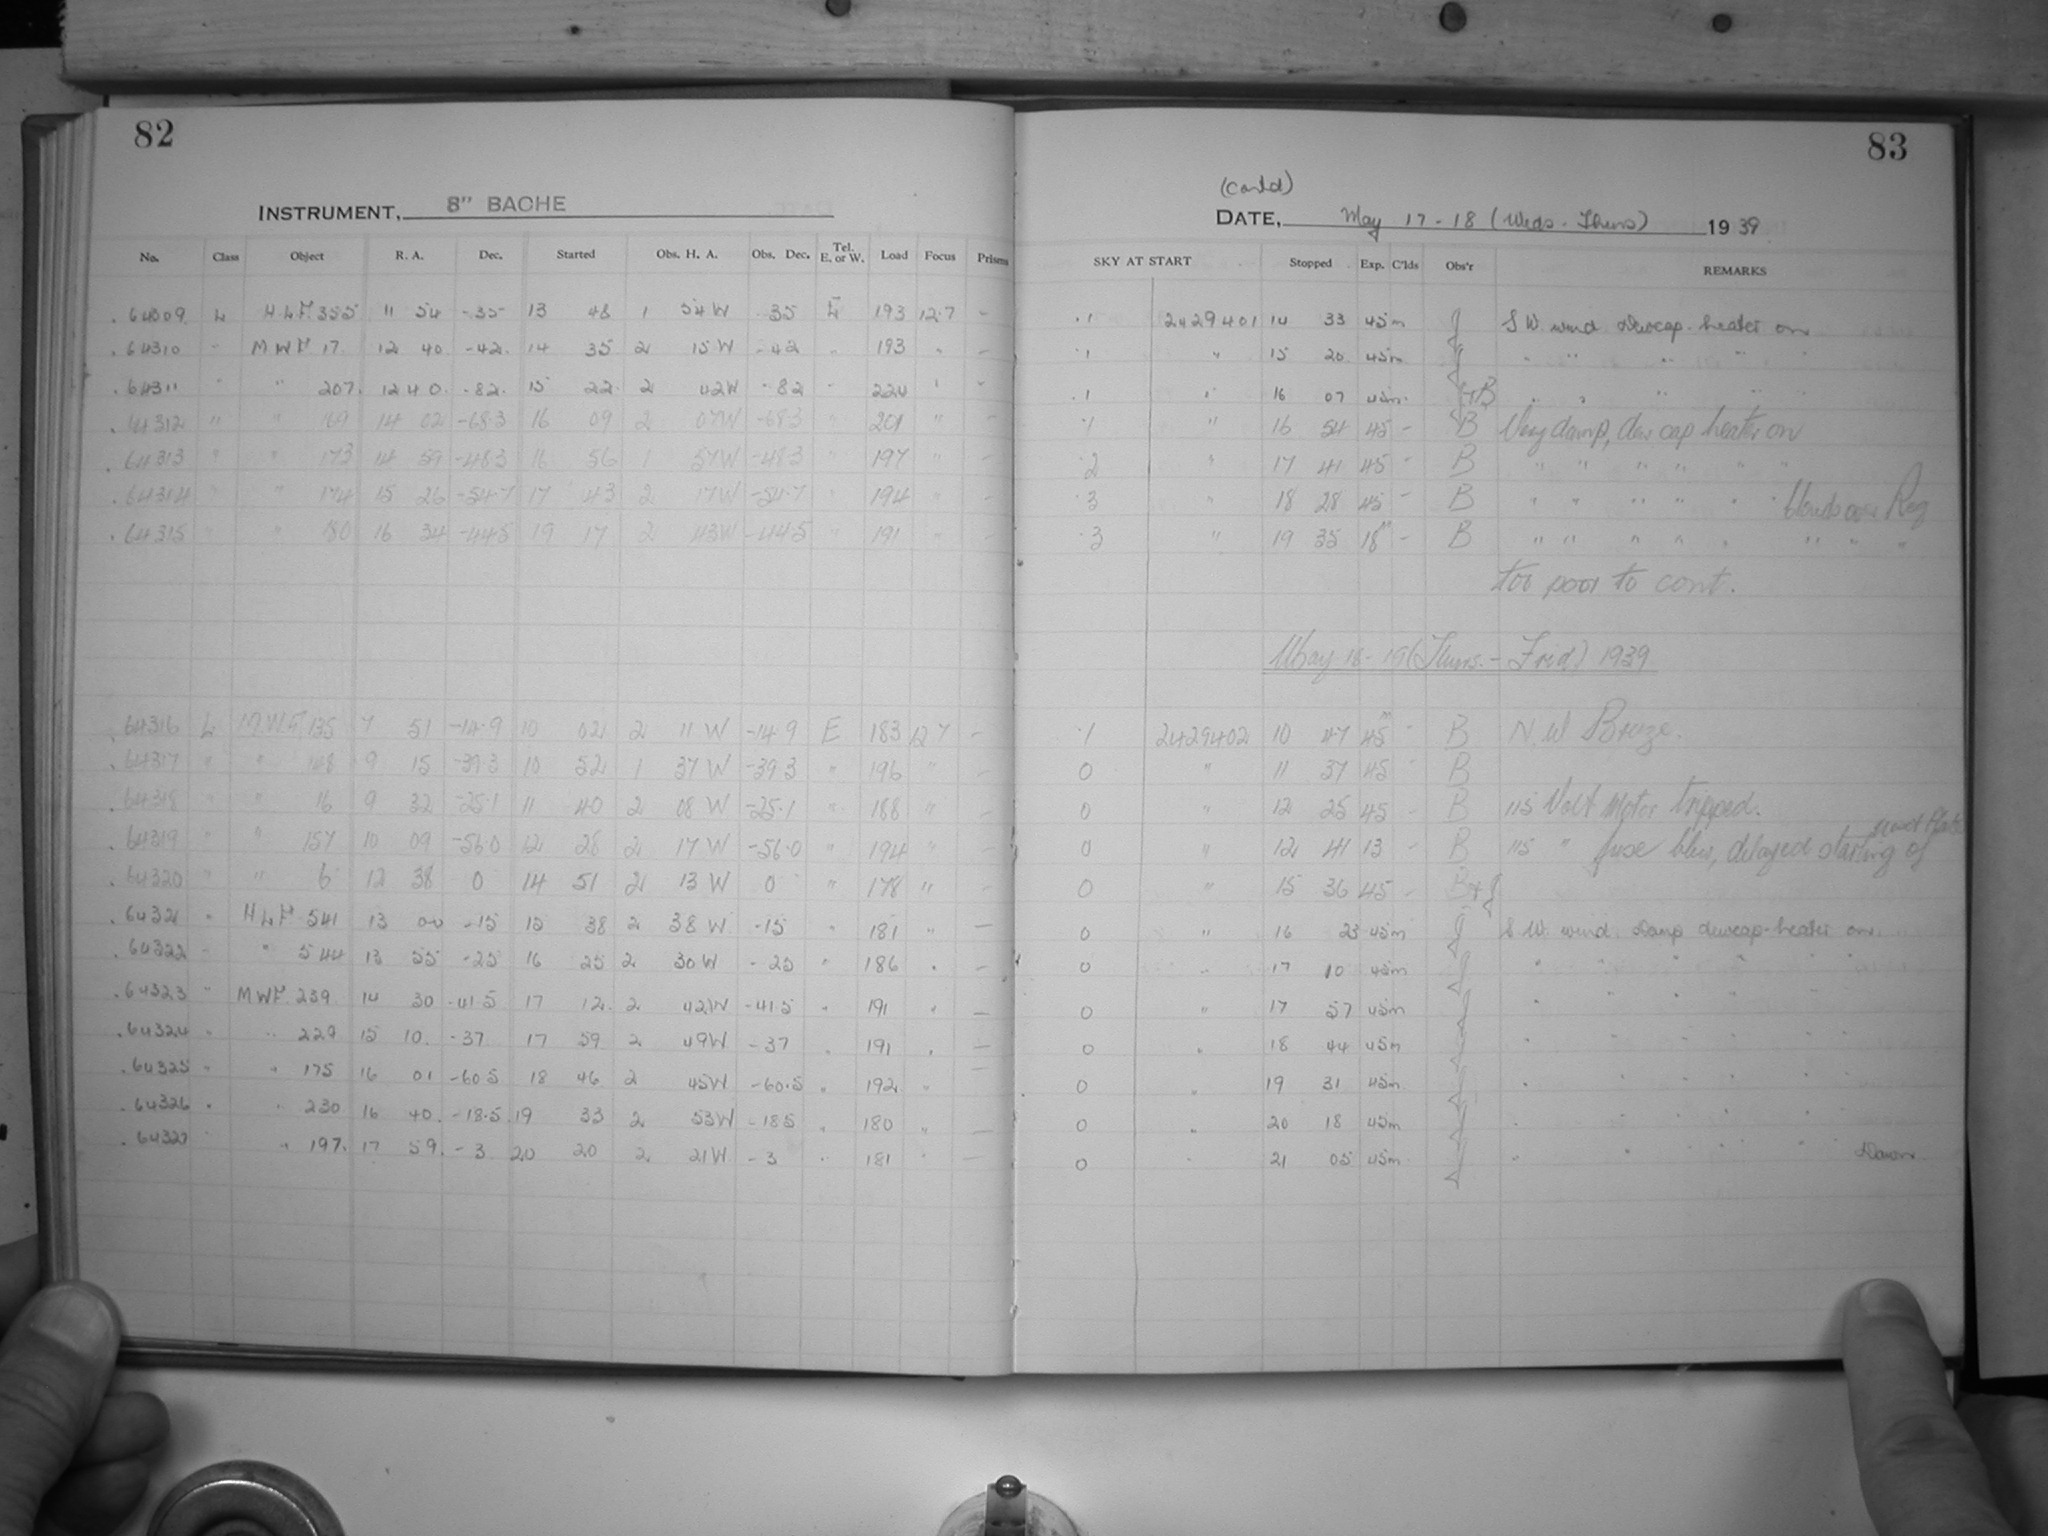 82
INSTRUMENT, 8" BACHE
No. Class Object R. A. Dec. Started Obs. H. A. Obs. Dec. Tel. E. or W. Load Focus Prisms
64309 L HLF 355 11 54 -35 13 48 1 54W -35 E 193 12.7 -
64310 " MWF 17 12 40 -42 14 35 2 15W -42 " 193 " -
64311 " " 207 12 40 -82 15 22 2 42W -82 " 224 " "
64312 " " 169 14 02 -68.3 16 09 2 07W -68.3 " 201 " -
64313 " " 173 14 59 -48.3 16 56 1 57W -48.3 " 197 " -
64314 " " 174 15 26 -54.7 17 43 2 17W -54.7 " 194 " -
64315 " " 180 16 34 -44.5 19 17 2 43W -44.5 " 191 " -
64316 L MWF 135 7 51 -14.9 10 02 2 11 W -14.9 E 183 12.7 -
64317 " " 148 9 15 -39.3 10 52 1 37 W -39.3 " 196 " -
64318 " " 16 9 32 -25.1 11 40 2 08 W -25.1 " 188 " -
64319 " " 157 10 09 -56.0 12 28 2 17 W -56.0 " 194 " -
64320 " " 6 12 38 0 14 51 2 13 W 0 " 178 " -
64321 " HLF 541 13 00 -15 15 38 2 38 W -15 " 181 " -
64322 - " 544 13 55 -25 16 25 2 30W -25 " 186 " -
64323 " MWF 239 14 30 -41.5 17 12 2 42W -41.5 " 191 " -
64324 " " 229 15 10 -37 17 59 2 49W -37 " 191 " -
64325 " " 175 16 01 -60.5 18 46 2 45W -60.5 " 192 " -
64326 " " 230 16 40 -18.5 19 33 2 53W -18.5 " 180 " -
64327 " 197 17 59 -3 20 20 2 21W -3 " 181 " -
83
(Contd)
DATE, May 17-18 (Weds-Thurs) 1939
SKY AT START Stopped Exp. C'lds Obs'r REMARKS
.1 2429401 14 33 45m J S W. wind Dewcap-heater on
.1 " 15 20 45m J " " " " "
.1 " 16 07 45m JB " " " " "
.1 " 16 54 45 - B Very damp, dew cap heater on
.2 " 17 41 45 - B " " " " " "
.3 " 18 28 45 - B " " " " " " Clouds over Reg
.3 " 19 35 18m - B " " " " " " " "
too poor to cont.
May 18-19 (Thurs.-Frid) 1939
.1 2429402 10 47 45m - B N.W Breeze.
0 " 11 37 45 - B
0 " 12 25 45 - B 115 Volt Motor tripped.
0 " 12 41 13 - B 115 " fuse blew, delayed starting of next Plate
0 " 15 36 45 - B+J
0 " 16 23 45m J S W. wind. Damp dewcap-heater on.
0 " 17 10 45m J " " " " " "
0 " 17 57 45m J " " " " "
0 " 18 44 45m J " " " " "
0 " 19 31 45m J " " " " "
0 " 20 18 45m J " " " " "
0 " 21 05 45m J " " " " " Dawn